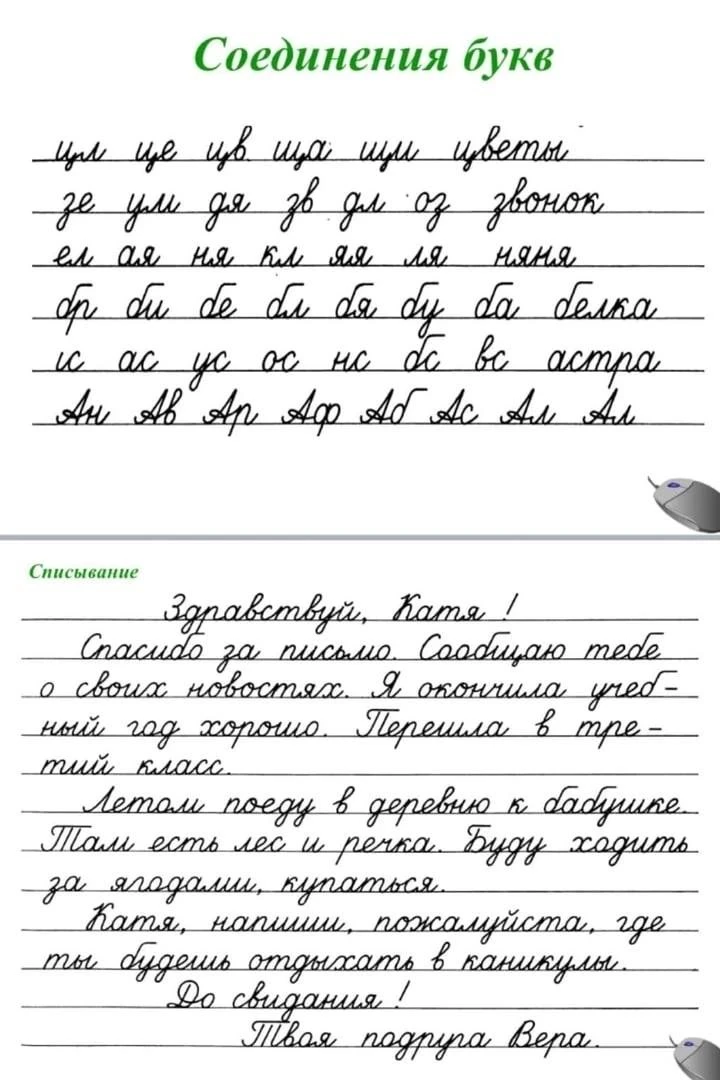 Соединения букв
цл це цв ща щи цветы
зе ум дя зв дл оз звонок
ел ая ня кл яя ля няня
бр би бе бл бя бу ба белка
ис ас ус ос нс бс вс астра
Ан Ав Ар Аф Аб Ас Ал Ал
Списывание
Здравствуй, Катя !
Спасибо за письмо. Сообщаю тебе
о своих новостях. Я окончила учеб-
ный год хорошо. Перешла в тре-
тий класс.
Летом поеду в деревню к бабушке.
Там есть лес и речка. Буду ходить
за ягодами, купаться.
Катя, напиши, пожалуйста, где
ты будешь отдыхать в каникулы.
До свидания !
Твоя подруга Вера.